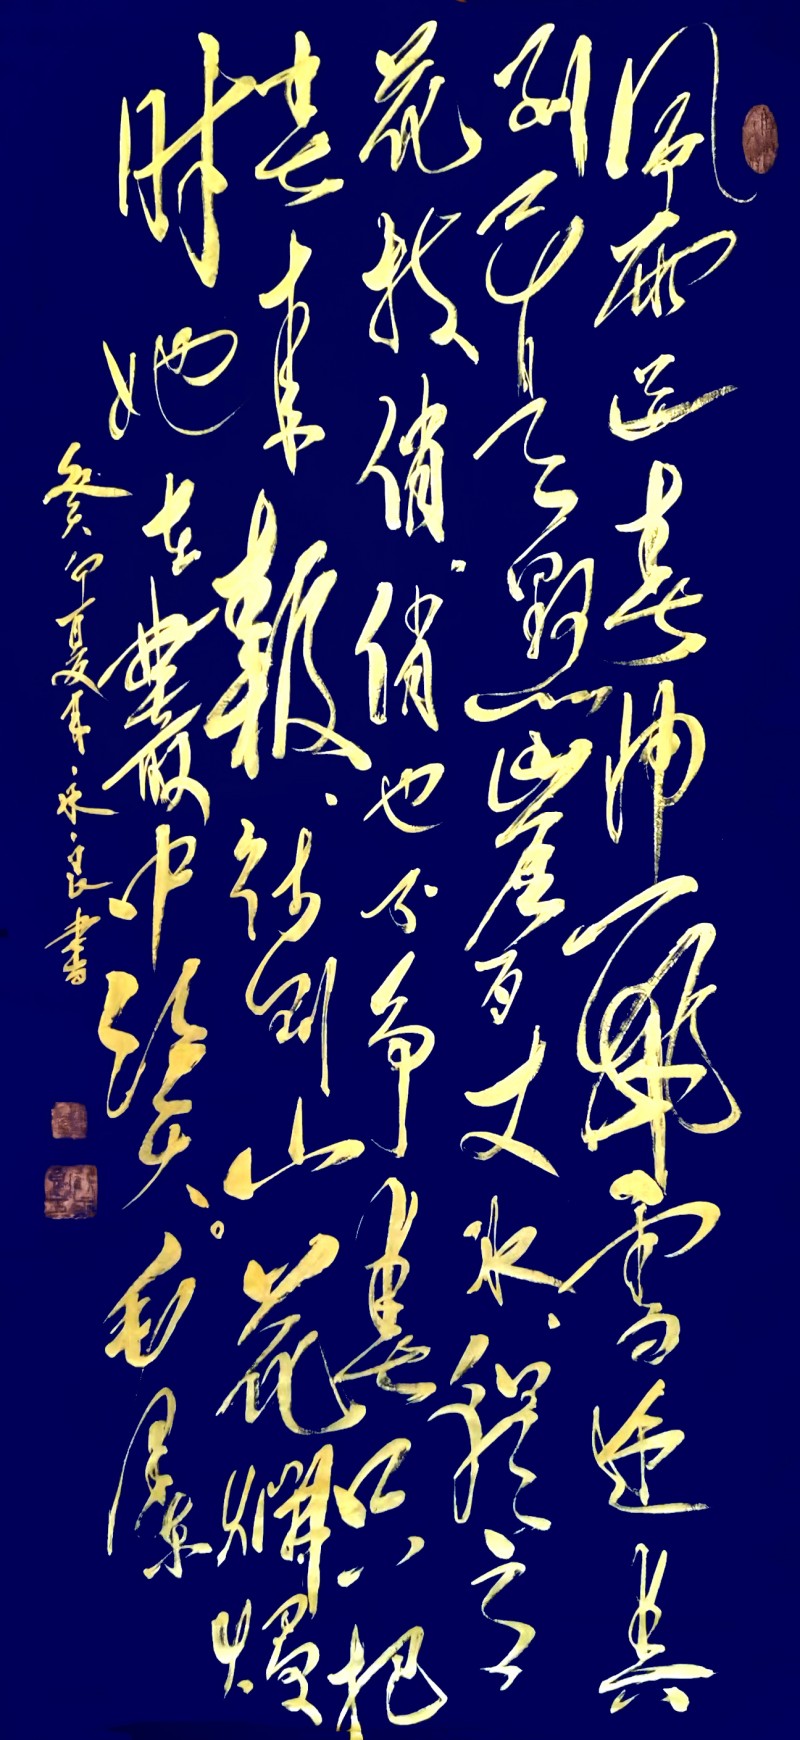 風雨送春归飛雪迎春
到已是懸崖百丈冰、猶有
花枝俏.俏也不争春只把
春来報、待到山花爛漫
時她在叢中笑、。毛澤东
癸卯夏永良書